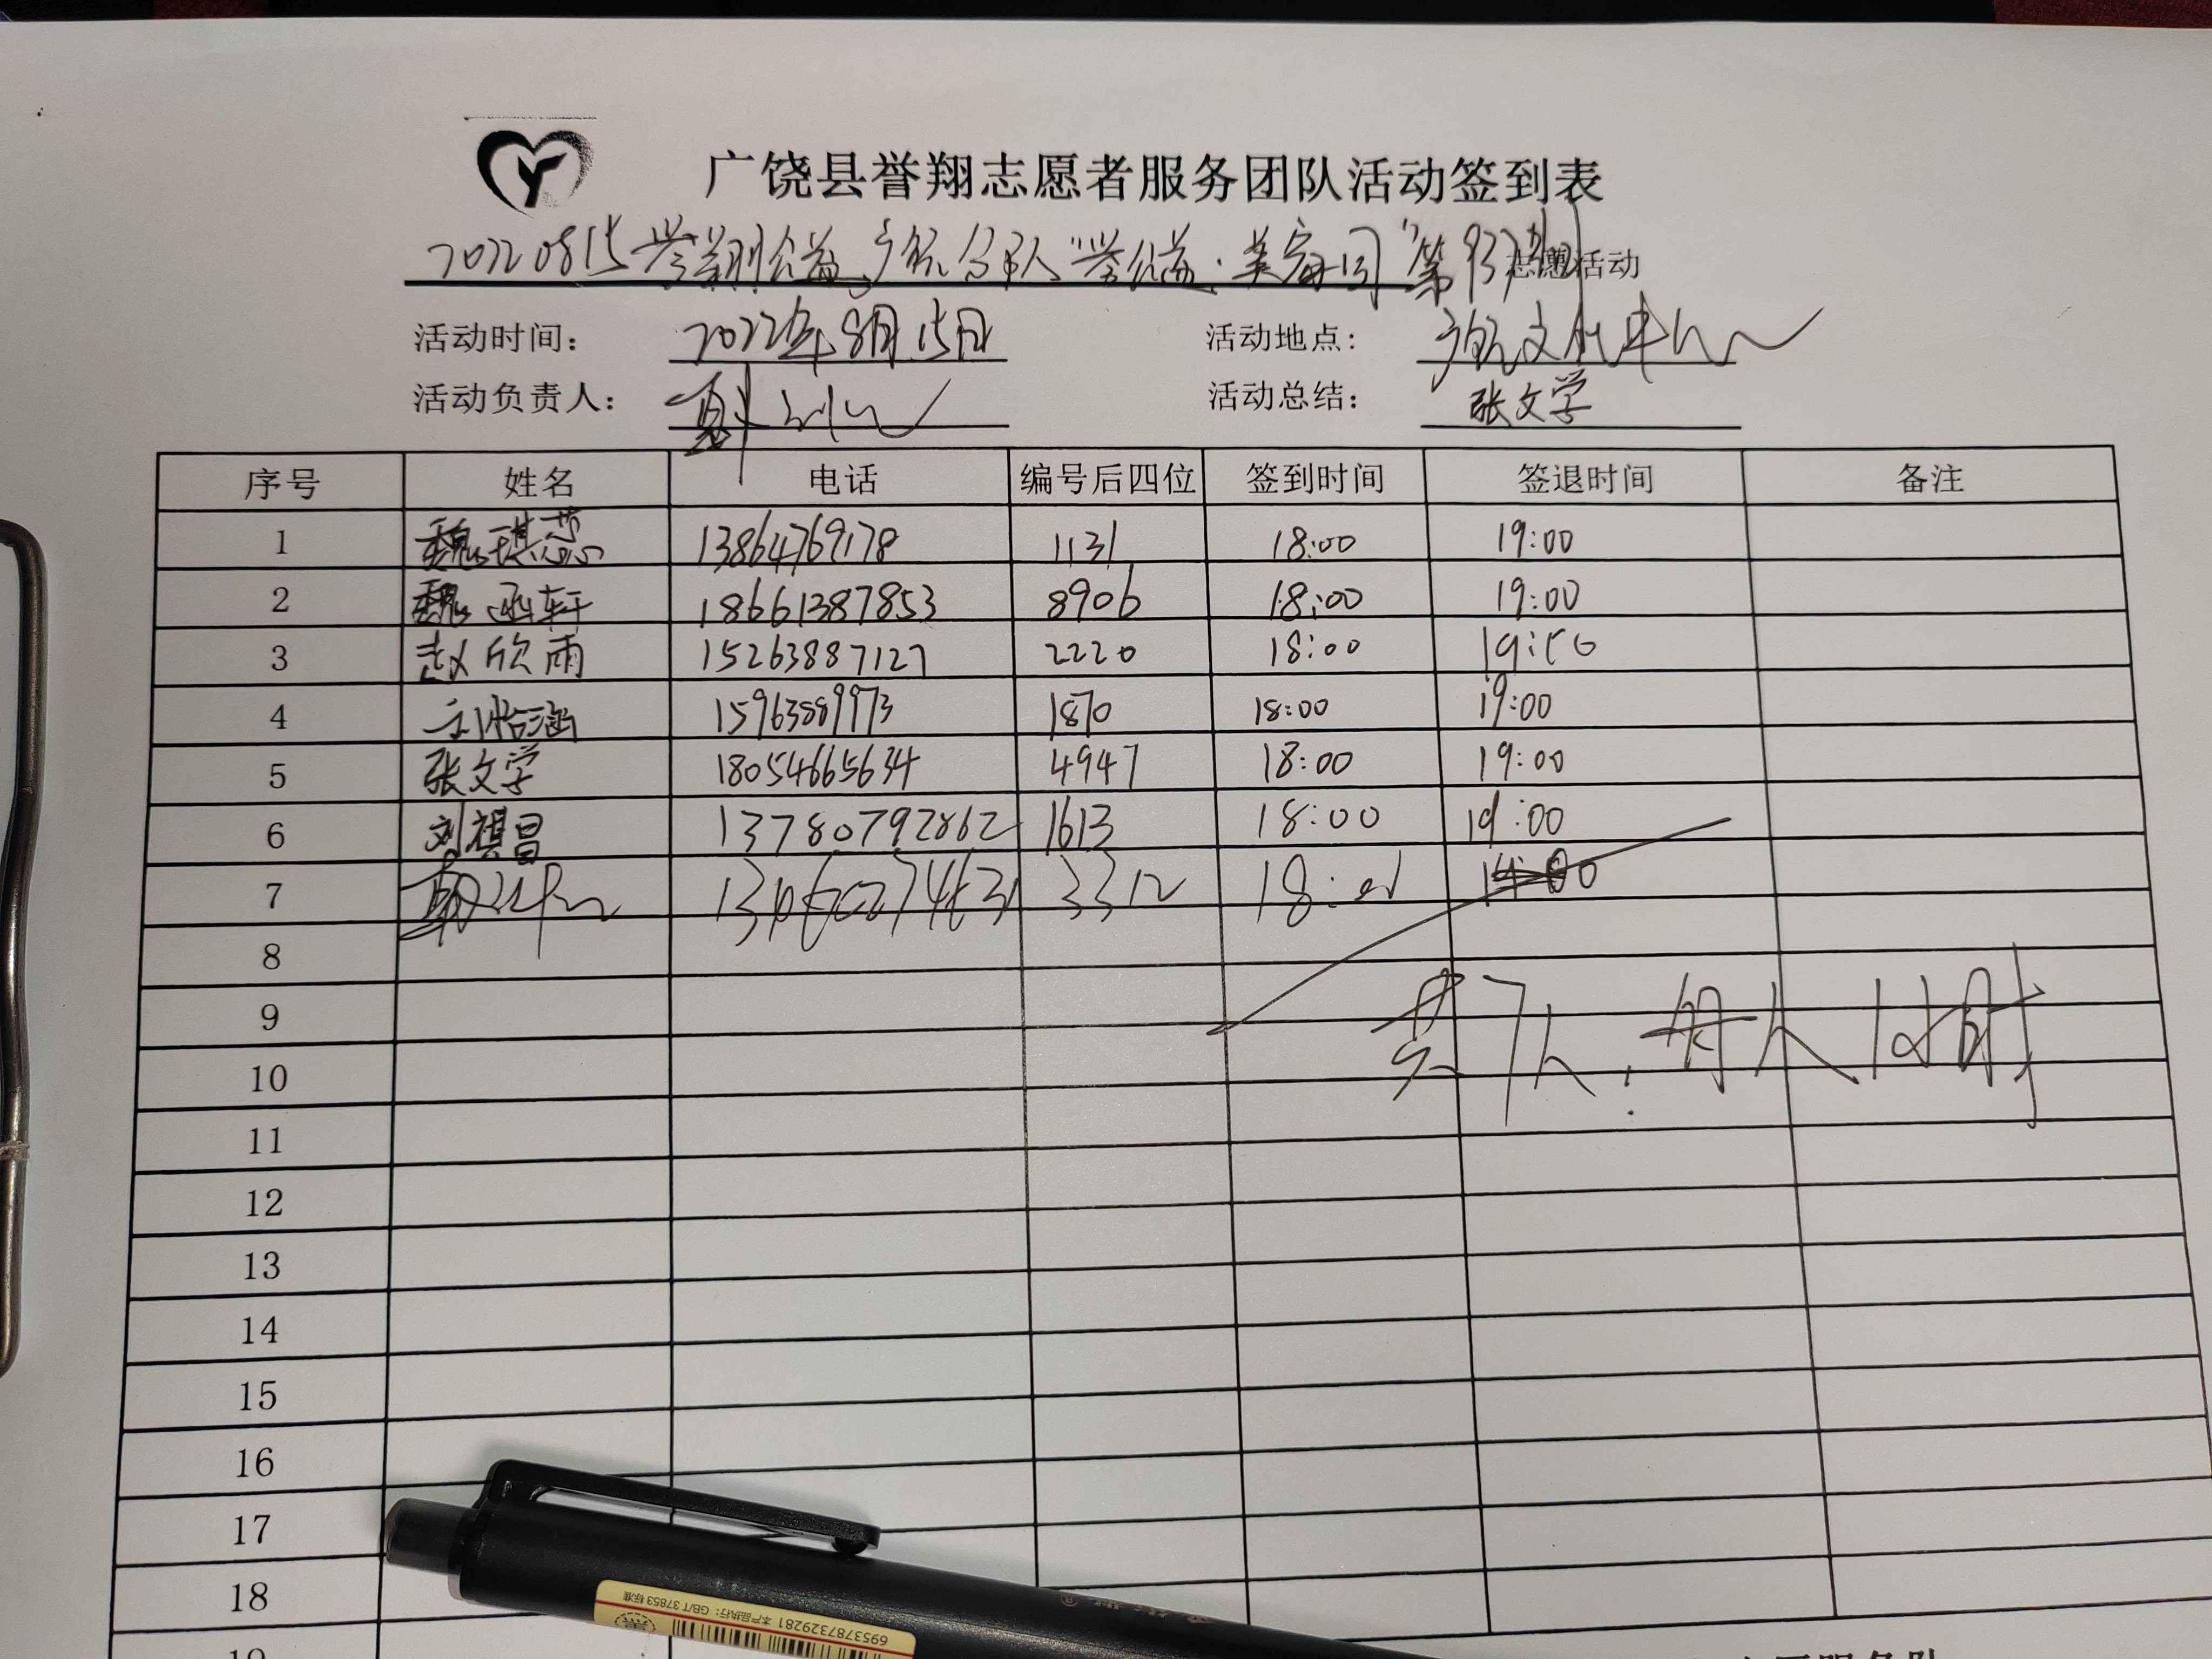 广饶县誉翔志愿者服务团队活动签到表
20220815誉翔公益广饶分队"誉公益·美家园"第937期志愿活动
活动时间: 2022年8月15日 活动地点: 广饶文化中心
活动负责人: 活动总结: 张文学
序号 姓名 电话 编号后四位 签到时间 签退时间 备注
1 魏琪蕊 13864769178 1131 18:00 19:00
2 魏函轩 18661387853 8906 18:00 19:00
3 赵欣雨 15263887127 2220 18:00
4 怡涵 15963889973 1870 18:00 19:00
5 张文学 18054665634 4947 18:00 19:00
6 刘祺昌 13780792862 1613 18:00 19:00
7 3312
8
9
10
共7人,每人1小时
11
12
13
14
15
16
17
18
19
本产品执行: GB/T 37853 标准
6953787329281